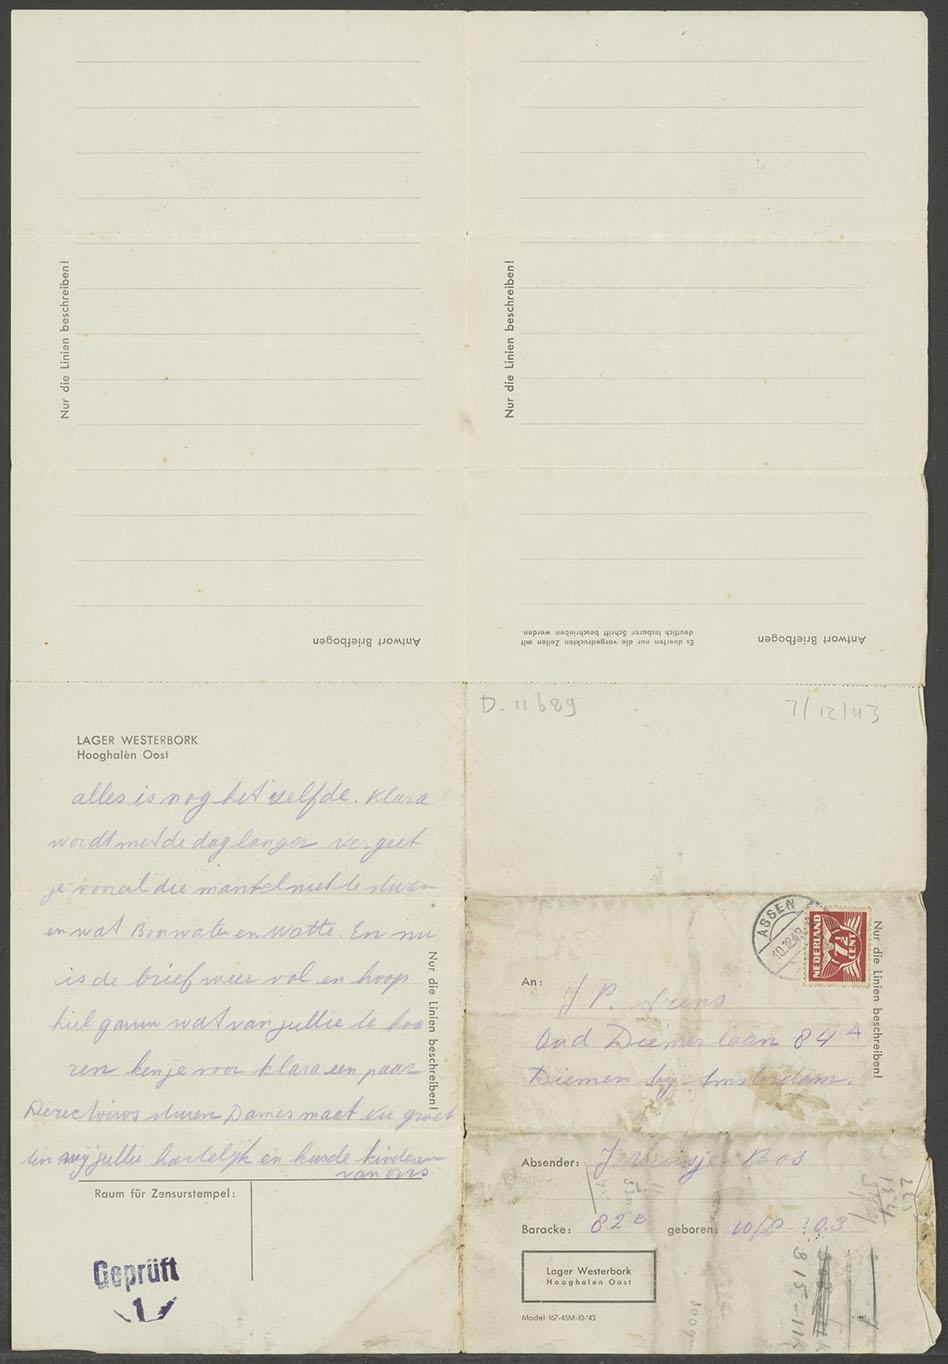 Nur die Linien beschreiben!
Nur die Linien beschreiben!
Antwort Briefbogen
Es duerfen nur die vorgedruckten Zeilen mit
deutlich lesbarer Schrift beschrieben werden.
Antwort Briefbogen
D. 11689
7/12/43
LAGER WESTERBORK
Hooghalèn Oost
alles is nog het zelfde. Klara
wordt met de dag langer vergeet
je vooral die mantel niet te sturen
en wat Boorwater en Watte. En nu
is de brief weer vol en hoop
hiel gauw wat van jullie te hoo
ren ken je voor Klara een paar
Directoiros sturen Dames maat XII groet
ten mij jullie hartelijk en kusde kinderen
van ons
Nur die Linien beschreiben!
Raum für Zensurstempel:
Geprüft
1
ASSEN
10.12.43
NEDERLAND
7½
CENT
Nur die Linien beschreiben!
An: J P.
Oud Diemer laan 84 A
Diemen by Amsterdam.
Absender: J Bos
Baracke: 82 B geboren: 10/8 - 03
Lager Westerbork
Hooghalen Oost
Model 167-45M-10-'43